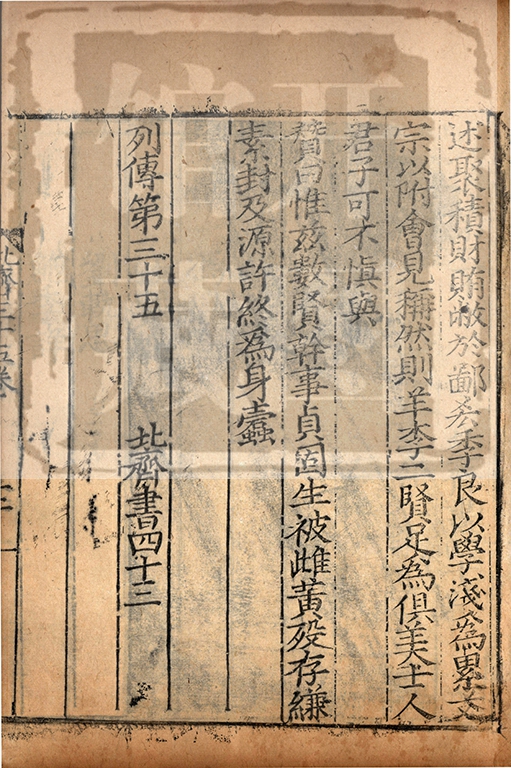 述聚積財賄敝於鄙吝李良以學淺為累文
宗以附會見稱然則羊李二賢足為俱美士人
君子可不慎與
贊曰惟兹數賢幹事貞固生被雌黃殁存縑
素封及源許終為身蠹
列傳第三十五　北齊書四十三